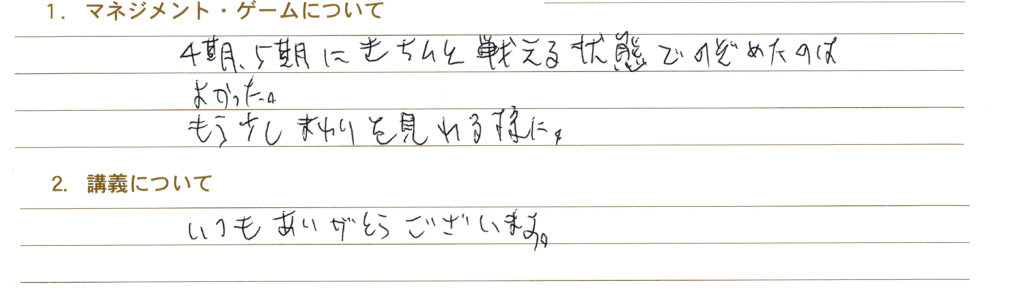 1. マネジメント・ゲームについて
4期、5期にきちんと戦える状態でのぞめたのは
よかった。
もう少しまわりを見れる様に。
2. 講義について
いつもありがとうございます。